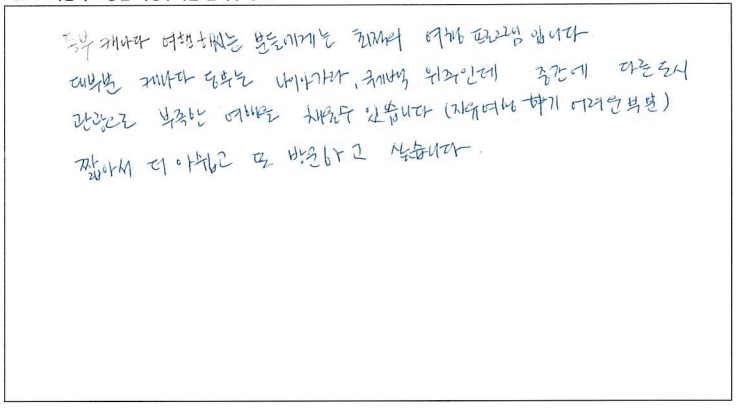 동부 캐나다 여행하시는 분들에게는 최적의 여행 프로그램 입니다
대부분 캐나다 동부는 나이아가라, 퀘백 위주인데 중간에 다른도시
관광으로 부족한 여행을 채울수 있습니다 (자유여행 하기 어려운부분)
짧아서 더 아쉽고 또 방문하고 싶습니다.